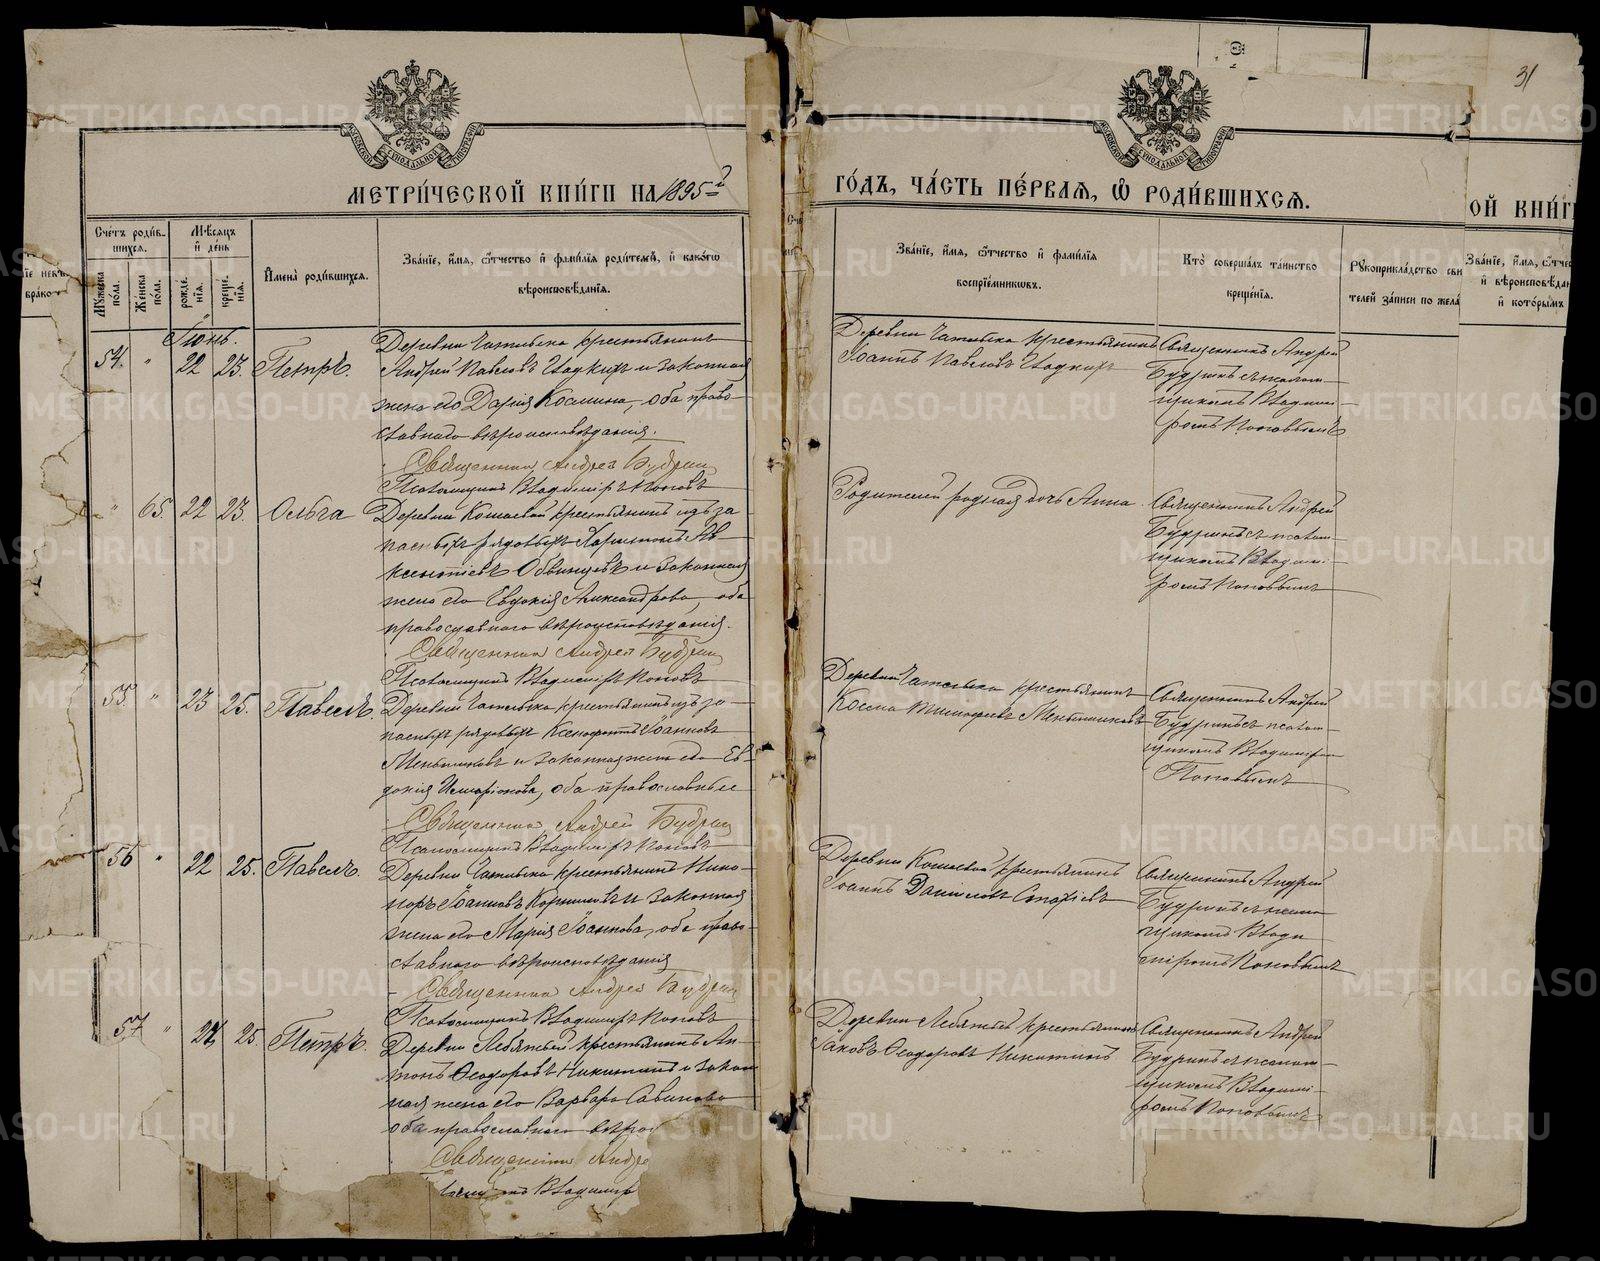 31
МЕТРИ́ЧЕСКОЙ КНИ́ГИ НА 1895 г.
ГО́ДЪ, ЧА́СТЬ ПЕ́РВАЯ, Ѡ҆ РОДИ́ВШИХСЯ.
ОЙ КНИ́Г
Сче́тъ роди́в-
шихся.
Мꙋ́жеска по́ла.
Же́нска по́ла.
Мѣ́сяцъ
и҆ де́нь
рожде́нїя.
креще́нїя.
И҆мена̀ роди́вшихся.
Зва́нїе, и҆́мя, ѻ҆́тчество и҆ фами́лїя роди́телей, и҆ како́гѡ
вѣроисповѣ́данїя.
Зва́нїе, и҆́мя, ѻ҆́тчество и҆ фами́лїя
воспрїе́мникѡвъ.
Кто̀ соверша́лъ та́инство
креще́нїя.
Рꙋкоприкла́дство сви
телей за́писи по жела́
Зва́нїе, и҆́мя, ѻ҆́тчес
и҆ вѣроисповѣ́дан
и҆ кото́рымъ
Іюнь.
54. " 22 23. Петръ.
Деревни крестьянинъ
Андрей Павловъ и законная
жена его Дарія Космина, оба право-
славнаго вѣроисповѣданія.
Священникъ Андрей Будринъ
Псаломщикъ Владиміръ Поповъ
Деревни крестьянинъ
Іоаннъ Павловъ
Священникъ Андрей
Будринъ съ псалом-
щикомъ Владимі-
ромъ Поповымъ
" 65. 22 23. Ольга
Деревни Кошаевой крестьянинъ изъ за-
пасныхъ рядовыхъ Харитонъ Ав-
ксентіевъ Обвинцевъ и законная
жена его Евдокія Александрова, оба
православнаго вѣроисповѣданія.
Священникъ Андрей Будринъ
Псаломщикъ Владиміръ Поповъ
Родителей родная дочь Анна.
Священникъ Андрей
Будринъ съ псалом-
щикомъ Владимі-
ромъ Поповымъ
55. " 23 25. Павелъ.
Деревни крестьянинъ изъ за-
пасныхъ рядовыхъ Ксенофонтъ Іоанновъ
Меньшиковъ и законная жена его Ев-
докія Иларіонова, оба православные
Священникъ Андрей Будринъ
Псаломщикъ Владиміръ Поповъ
Деревни крестьянинъ
Косма Тимофеевъ Меньшиковъ
Священникъ Андрей
Будринъ съ псалом-
щикомъ Владиміром
Поповымъ
56 " 22 25. Павелъ.
Деревни крестьянинъ Ника-
норъ Іоанновъ и законная
жена его Марія Іоаннова, оба право-
славнаго вѣроисповѣданія
Священникъ Андрей Будринъ
Псаломщикъ Владиміръ Поповъ
Деревни Кошаевой крестьянинъ
Іоаннъ Даниловъ
Священникъ Андрей
Будринъ съ псалом
щикомъ Влади
міромъ Поповымъ
57 " 25. Петръ.
Деревни Лебяжьей крестьянинъ Ан-
тонъ Ѳеодоровъ Никитинъ и закон
ная жена его Варвара Савинова
оба православнаго вѣро
Священникъ Андре
Владимір
Деревни Лебяжьей крестьянинъ
Іаковъ Ѳеодоровъ Никитинъ
Священникъ Андрей
Будринъ съ псалом-
щикомъ Владимі-
ромъ Поповымъ
METRIKI.GASO-URAL.RU